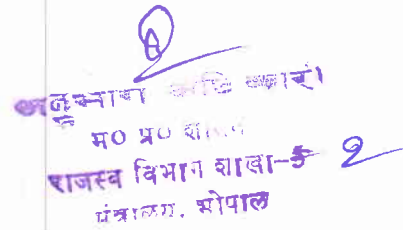 अनुभाग अधिकारी
म० प्र० शासन
राजस्व विभाग शाखा-5
मंत्रालय, भोपाल